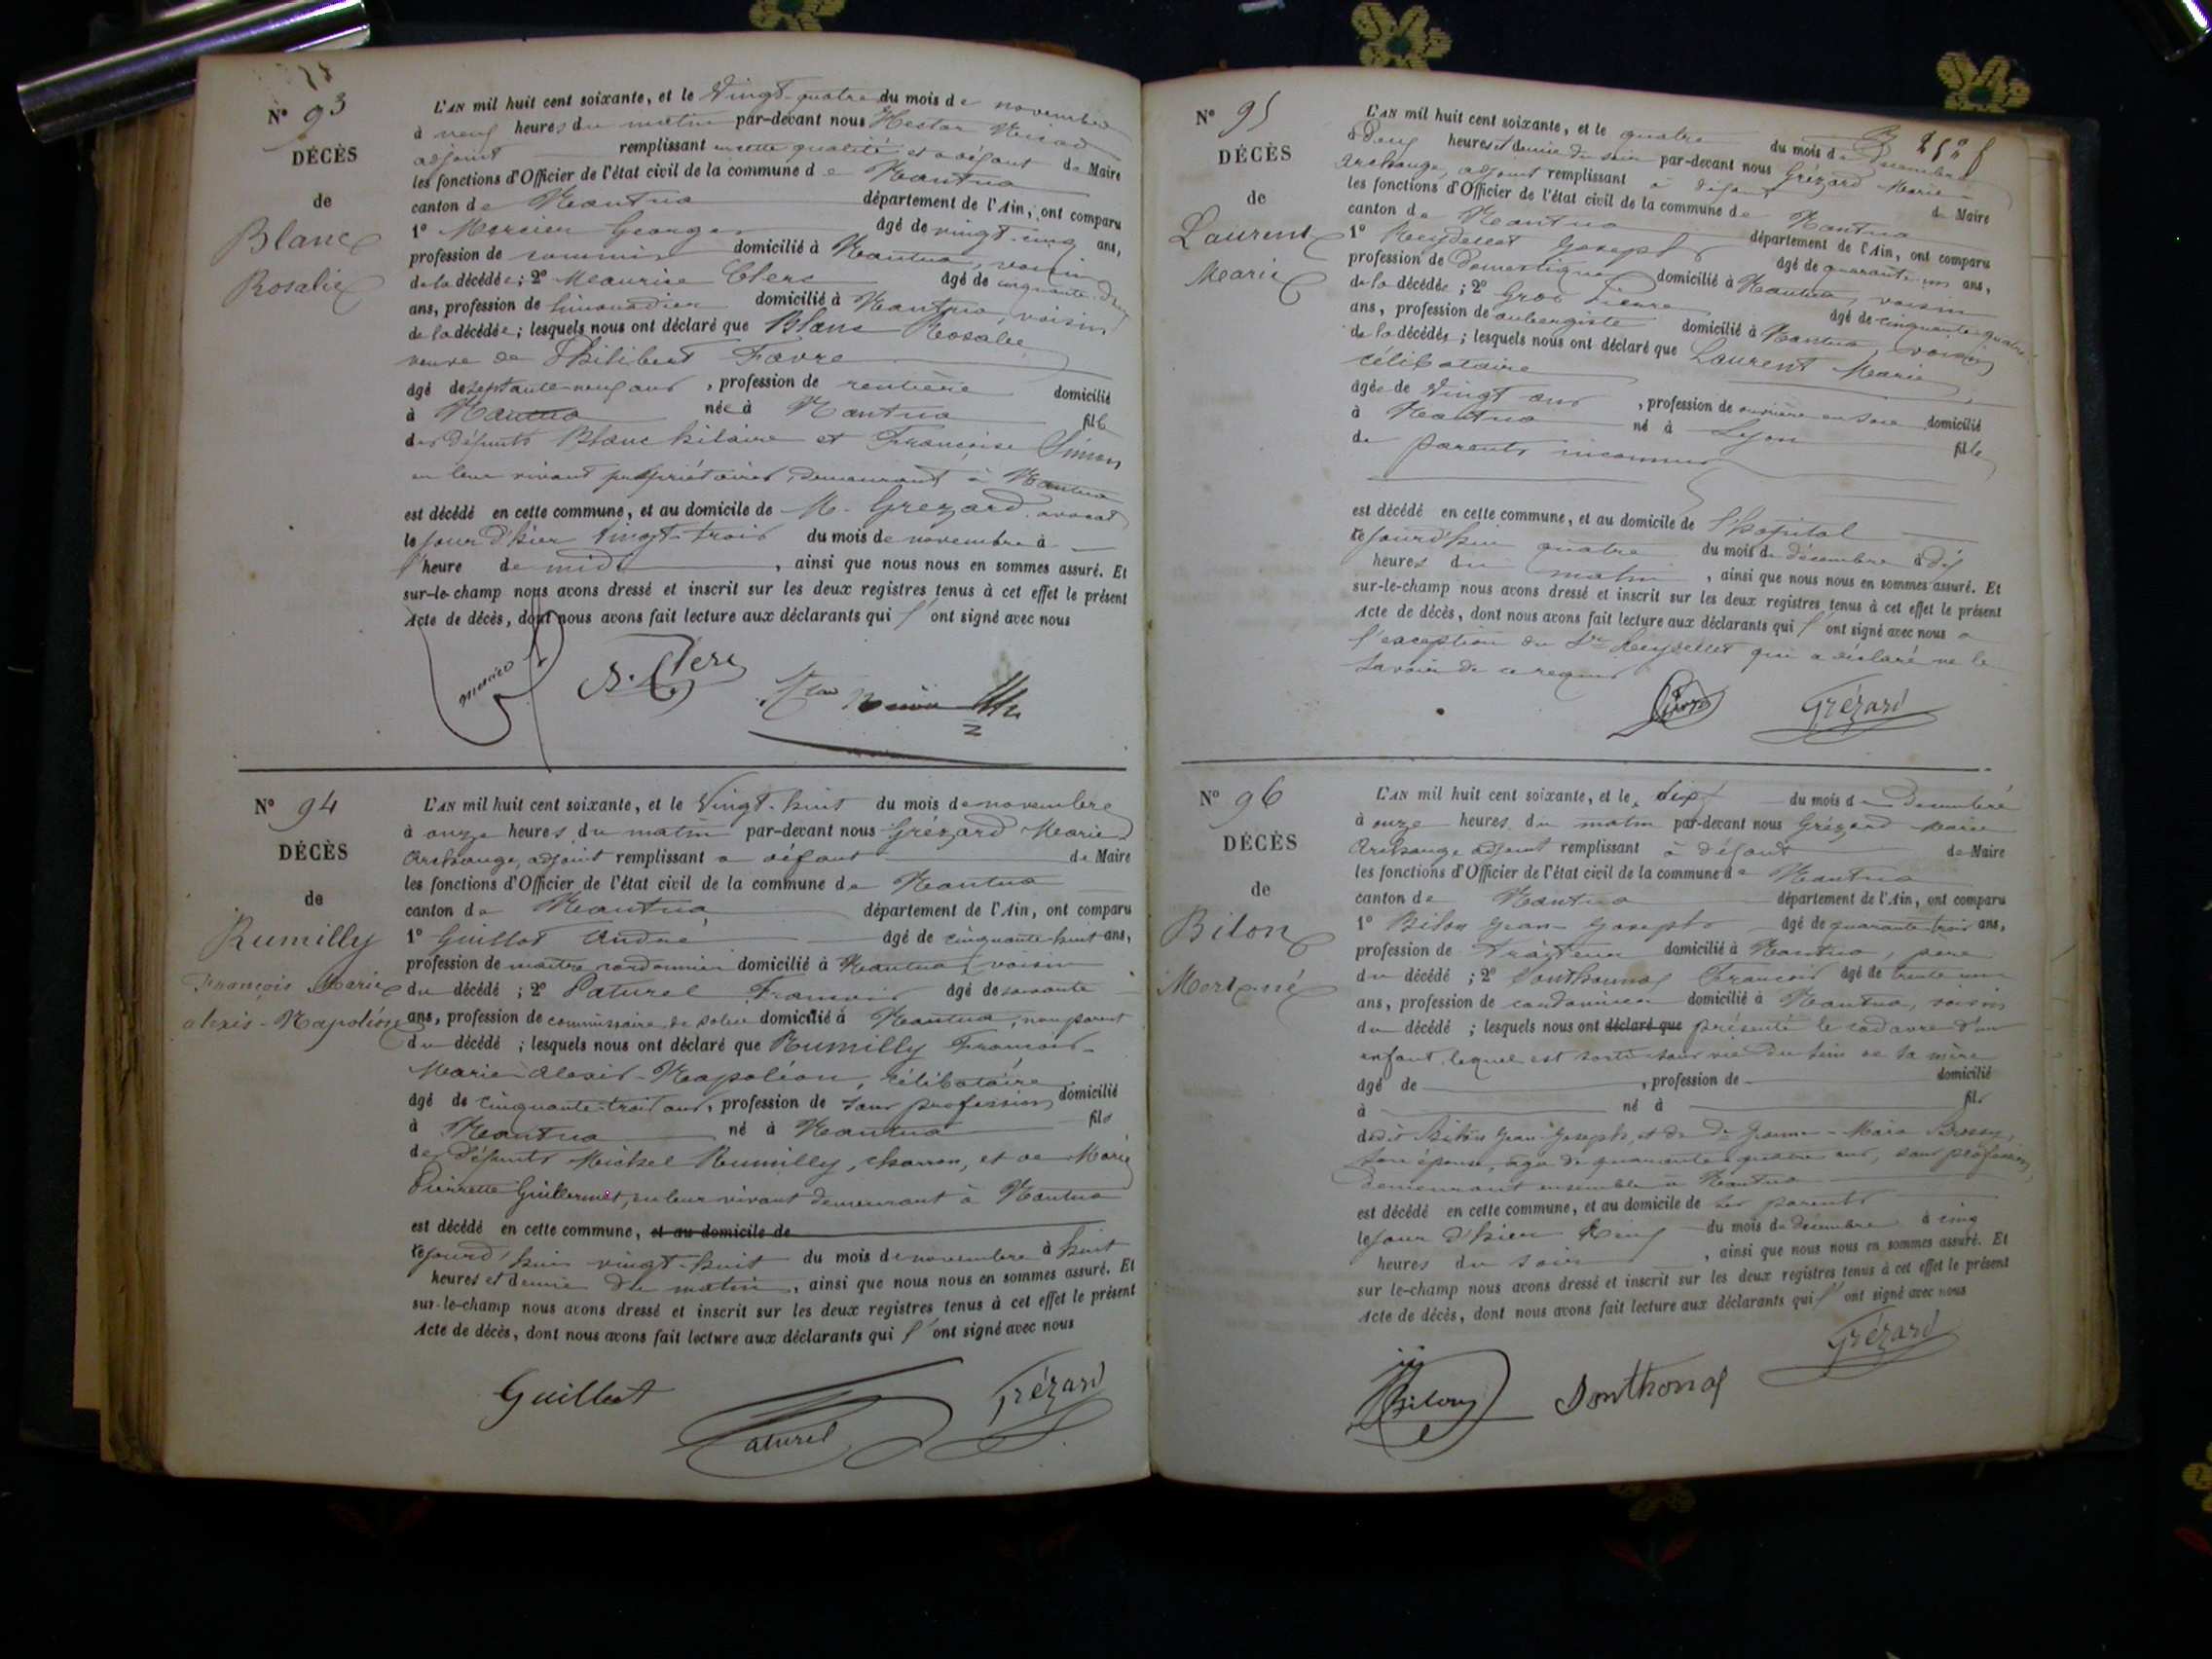 N° 93
DÉCÈS
de
Blanc
Rosalie
L'AN mil huit cent soixante, et le Vingt-quatre du mois de novembre
à neuf heures du matin par-devant nous Hector
adjoint remplissant en cette qualité et à défaut de Maire
les fonctions d'Officier de l'état civil de la commune de Nantua
canton de Nantua département de l'Ain, ont comparu
1° Mercier Georges âgé de vingt-cinq ans,
profession de commis domicilié à Nantua, voisin
de la décédée; 2° Maurice Clerc âgé de cinquante
ans, profession de limonadier domicilié à Nantua, voisin
de la décédée; lesquels nous ont déclaré que Blanc Rosalie
veuve de Philibert Favre
âgé de septante-neuf ans, profession de rentière domicilié
à Nantua née à Nantua fille
des défunts Blanc hilaire et Françoise Simon
en leur vivant propriétaires, demeurant à Nantua
est décédé en cette commune, et au domicile de M. Grézard, avocat
le jour d'hier vingt-trois du mois de novembre à
l'heure de midi, ainsi que nous nous en sommes assuré. Et
sur-le-champ nous avons dressé et inscrit sur les deux registres tenus à cet effet le présent
Acte de décès, dont nous avons fait lecture aux déclarants qui l'ont signé avec nous
mercier
Clerc
N° 94
DÉCÈS
de
Rumilly
François Marie
alexis-Napoléon
L'AN mil huit cent soixante, et le Vingt-huit du mois de novembre
à onze heures du matin par-devant nous Grézard Marie
Archange, adjoint remplissant à défaut de Maire
les fonctions d'Officier de l'état civil de la commune de Nantua
canton de Nantua département de l'Ain, ont comparu
1° Guillot André âgé de cinquante-huit ans,
profession de maître cordonnier domicilié à Nantua, voisin
du décédé; 2° Paturel François âgé de soixante
ans, profession de commissaire de police domicilié à Nantua, non parent
du décédé; lesquels nous ont déclaré que Rumilly François-
Marie-Alexis-Napoléon, célibataire
âgé de cinquante-trois ans, profession de sans profession domicilié
à Nantua né à Nantua fils
des défunts Michel Rumilly, charron, et de Marie
Pierrette Guillermet, en leur vivant demeurant à Nantua
est décédé en cette commune, et au domicile de
cejourd'hui vingt-huit du mois de novembre à huit
heures et demie du matin, ainsi que nous nous en sommes assuré. Et
sur-le-champ nous avons dressé et inscrit sur les deux registres tenus à cet effet le présent
Acte de décès, dont nous avons fait lecture aux déclarants qui l'ont signé avec nous
Guillot
Paturel
Grézard
N° 95
DÉCÈS
de
Laurent
Marie
L'AN mil huit cent soixante, et le quatre du mois de Décembre
à Deux heures et demie du soir par-devant nous Grézard Marie
Archange, adjoint remplissant à défaut de Maire
les fonctions d'Officier de l'état civil de la commune de Nantua
canton de Nantua département de l'Ain, ont comparu
1° Reydellet Joseph âgé de quarante-un ans,
profession de Domestique domicilié à Nantua, voisin
de la décédée; 2° Gros Pierre âgé de cinquante-quatre
ans, profession de aubergiste domicilié à Nantua, voisin
de la décédée; lesquels nous ont déclaré que Laurent Marie,
célibataire
âgée de Vingt ans, profession de ouvrière en soie domicilié
à Nantua né à Lyon fille
de parents inconnus
est décédé en cette commune, et au domicile de l'hôpital
cejourd'hui quatre du mois de décembre à dix
heures du matin, ainsi que nous nous en sommes assuré. Et
sur-le-champ nous avons dressé et inscrit sur les deux registres tenus à cet effet le présent
Acte de décès, dont nous avons fait lecture aux déclarants qui l'ont signé avec nous à
l'exception du Sr Reydellet qui a déclaré ne le
savoir de ce requis
Grézard
N° 96
DÉCÈS
de
Bilon
Mort-né
L'AN mil huit cent soixante, et le six du mois de Décembre
à onze heures du matin par-devant nous Grézard Marie
Archange adjoint remplissant à défaut de Maire
les fonctions d'Officier de l'état civil de la commune de Nantua
canton de Nantua département de l'Ain, ont comparu
1° Bilon Jean-Joseph âgé de quarante-trois ans,
profession de traiteur domicilié à Nantua, père
du décédé; 2° Donthonnas François âgé de trente
ans, profession de cordonnier domicilié à Nantua, voisin
du décédé; lesquels nous ont déclaré que présenté le cadavre d'un
enfant lequel est sorti sans vie du sein de sa mère
âgé de , profession de domicilié
à né à fils
dudit Bilon Jean-Joseph, et de De Jeanne-Marie
son épouse, âgée de quarante ans, sans profession,
demeurant ensemble à Nantua
est décédé en cette commune, et au domicile de ses parents
le jour d'hier Cinq du mois de décembre à cinq
heures du soir, ainsi que nous nous en sommes assuré. Et
sur le-champ nous avons dressé et inscrit sur les deux registres tenus à cet effet le présent
Acte de décès, dont nous avons fait lecture aux déclarants qui l'ont signé avec nous
Grézard
Bilon
Donthonas